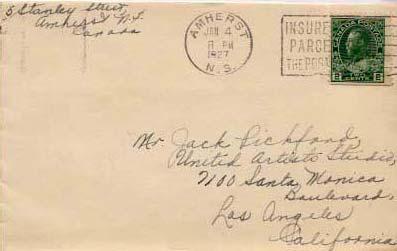 5 Stanley Street,
Amherst N.S.
Canada
AMHERST
JAN 4
PM
1927
N.S.
INSURE
PARCE
THE POS
2 CENTS 2
Mr. Jack Pickford
United Artists Studio,
7100 Santa Monica
Boulevard,
Los Angeles
California